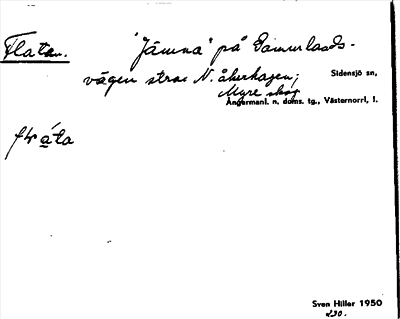 Flatan.
"Jämna" på Sammerlands-
vägen strax N. åkerhagen;
Sidensjö sn,
Myre skog
Ångermanl. n. doms. tg., Västernorrl, l.
flràta
Sven Hiller 1950
230.